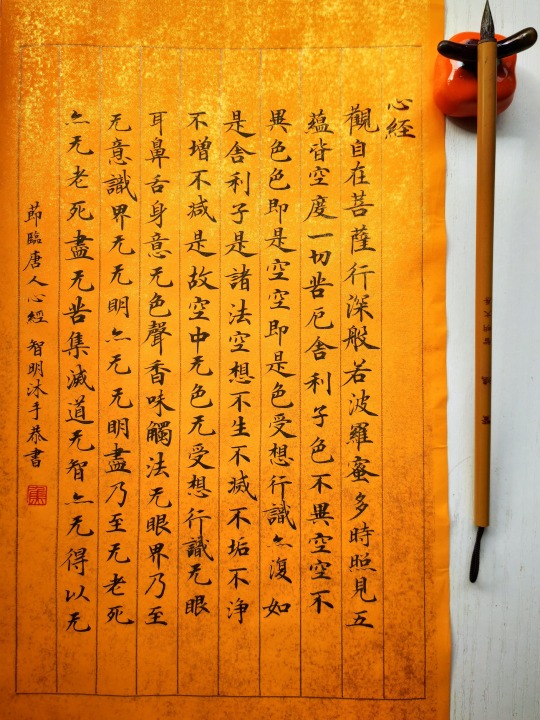 心經
觀自在菩薩行深般若波羅蜜多時照見五
蘊皆空度一切苦厄舍利子色不異空空不
異色色即是空空即是色受想行識亦復如
是舍利子是諸法空想不生不滅不垢不净
不增不減是故空中无色无受想行識无眼
耳鼻舌身意无色聲香味觸法无眼界乃至
无意識界无无明亦无无明盡乃至无老死
亦无老死盡无苦集滅道无智亦无得以无
節臨唐人心經 智明沐手恭書